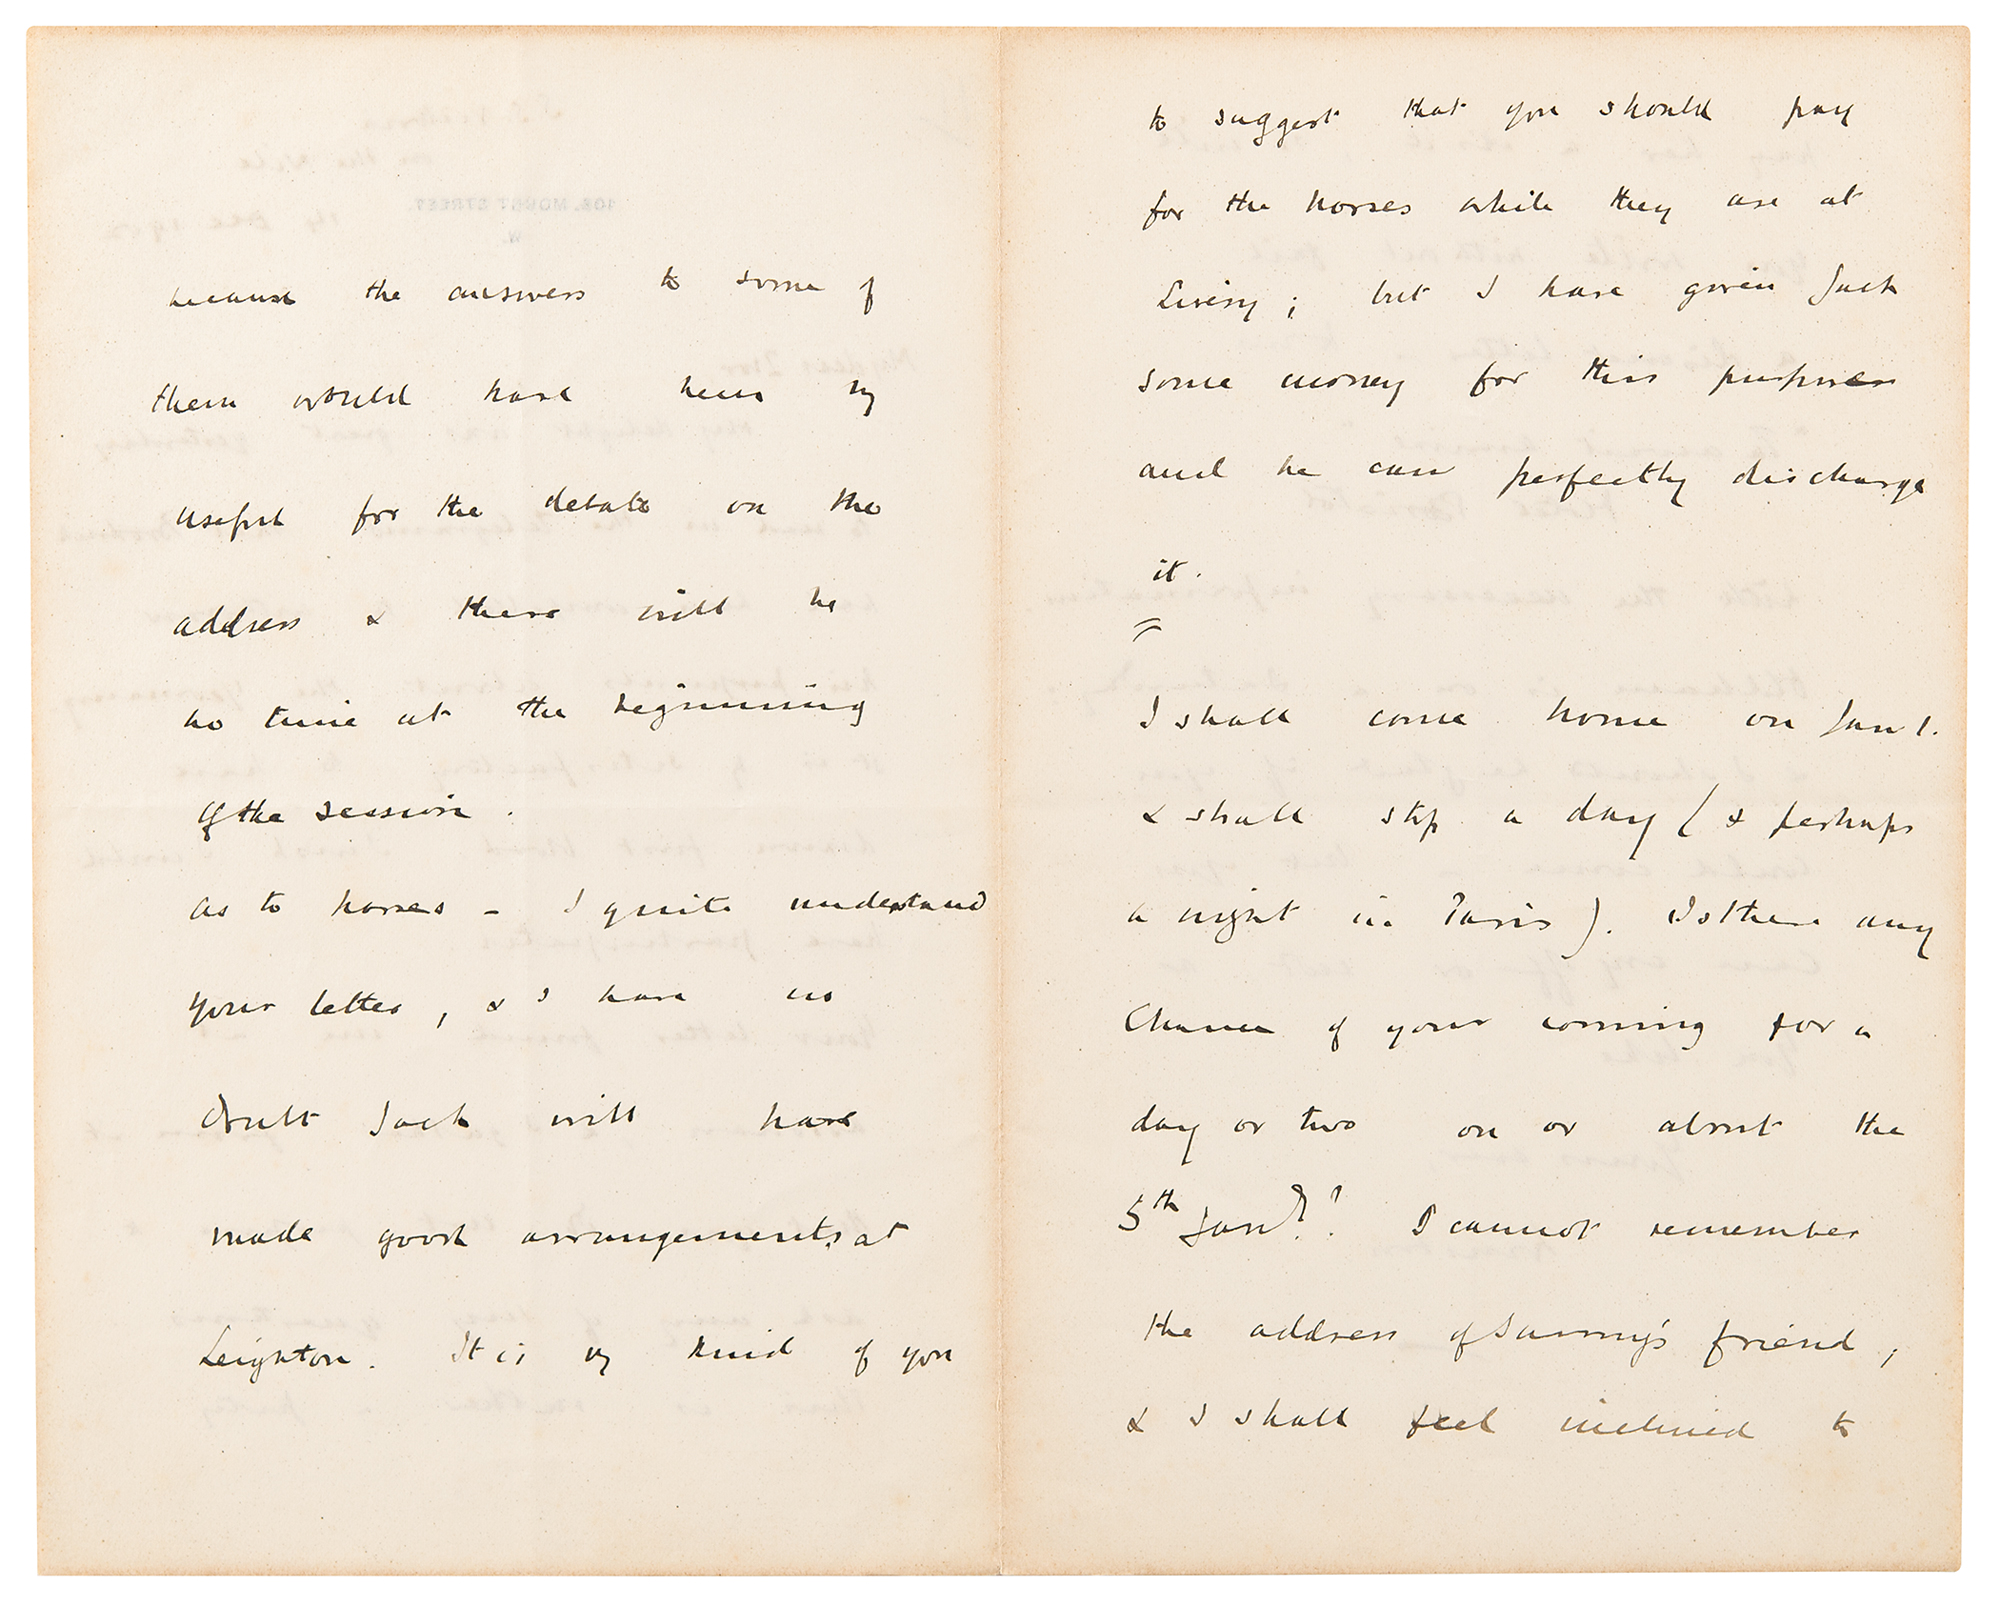 because the answers to some of
them would have been vy
useful for the debate on the
address & there will be
no time at the beginning
of the session.
As to horses – I quite understand
your letter, & I have no
doubt Jack will have
made good arrangements at
Leighton. It is vy kind of you
to suggest that you should pay
for the horses while they are at
Livery; but I have given Jack
some money for this purpose
and he can perfectly discharge
it.
I shall come home on Jan 1.
& shall stop a day (& perhaps
a night in Paris). Is there any
chance of your coming for a
day or two on or about the
5th Jan?? I cannot remember
the address of Sunny's friend,
& I shall feel inclined to